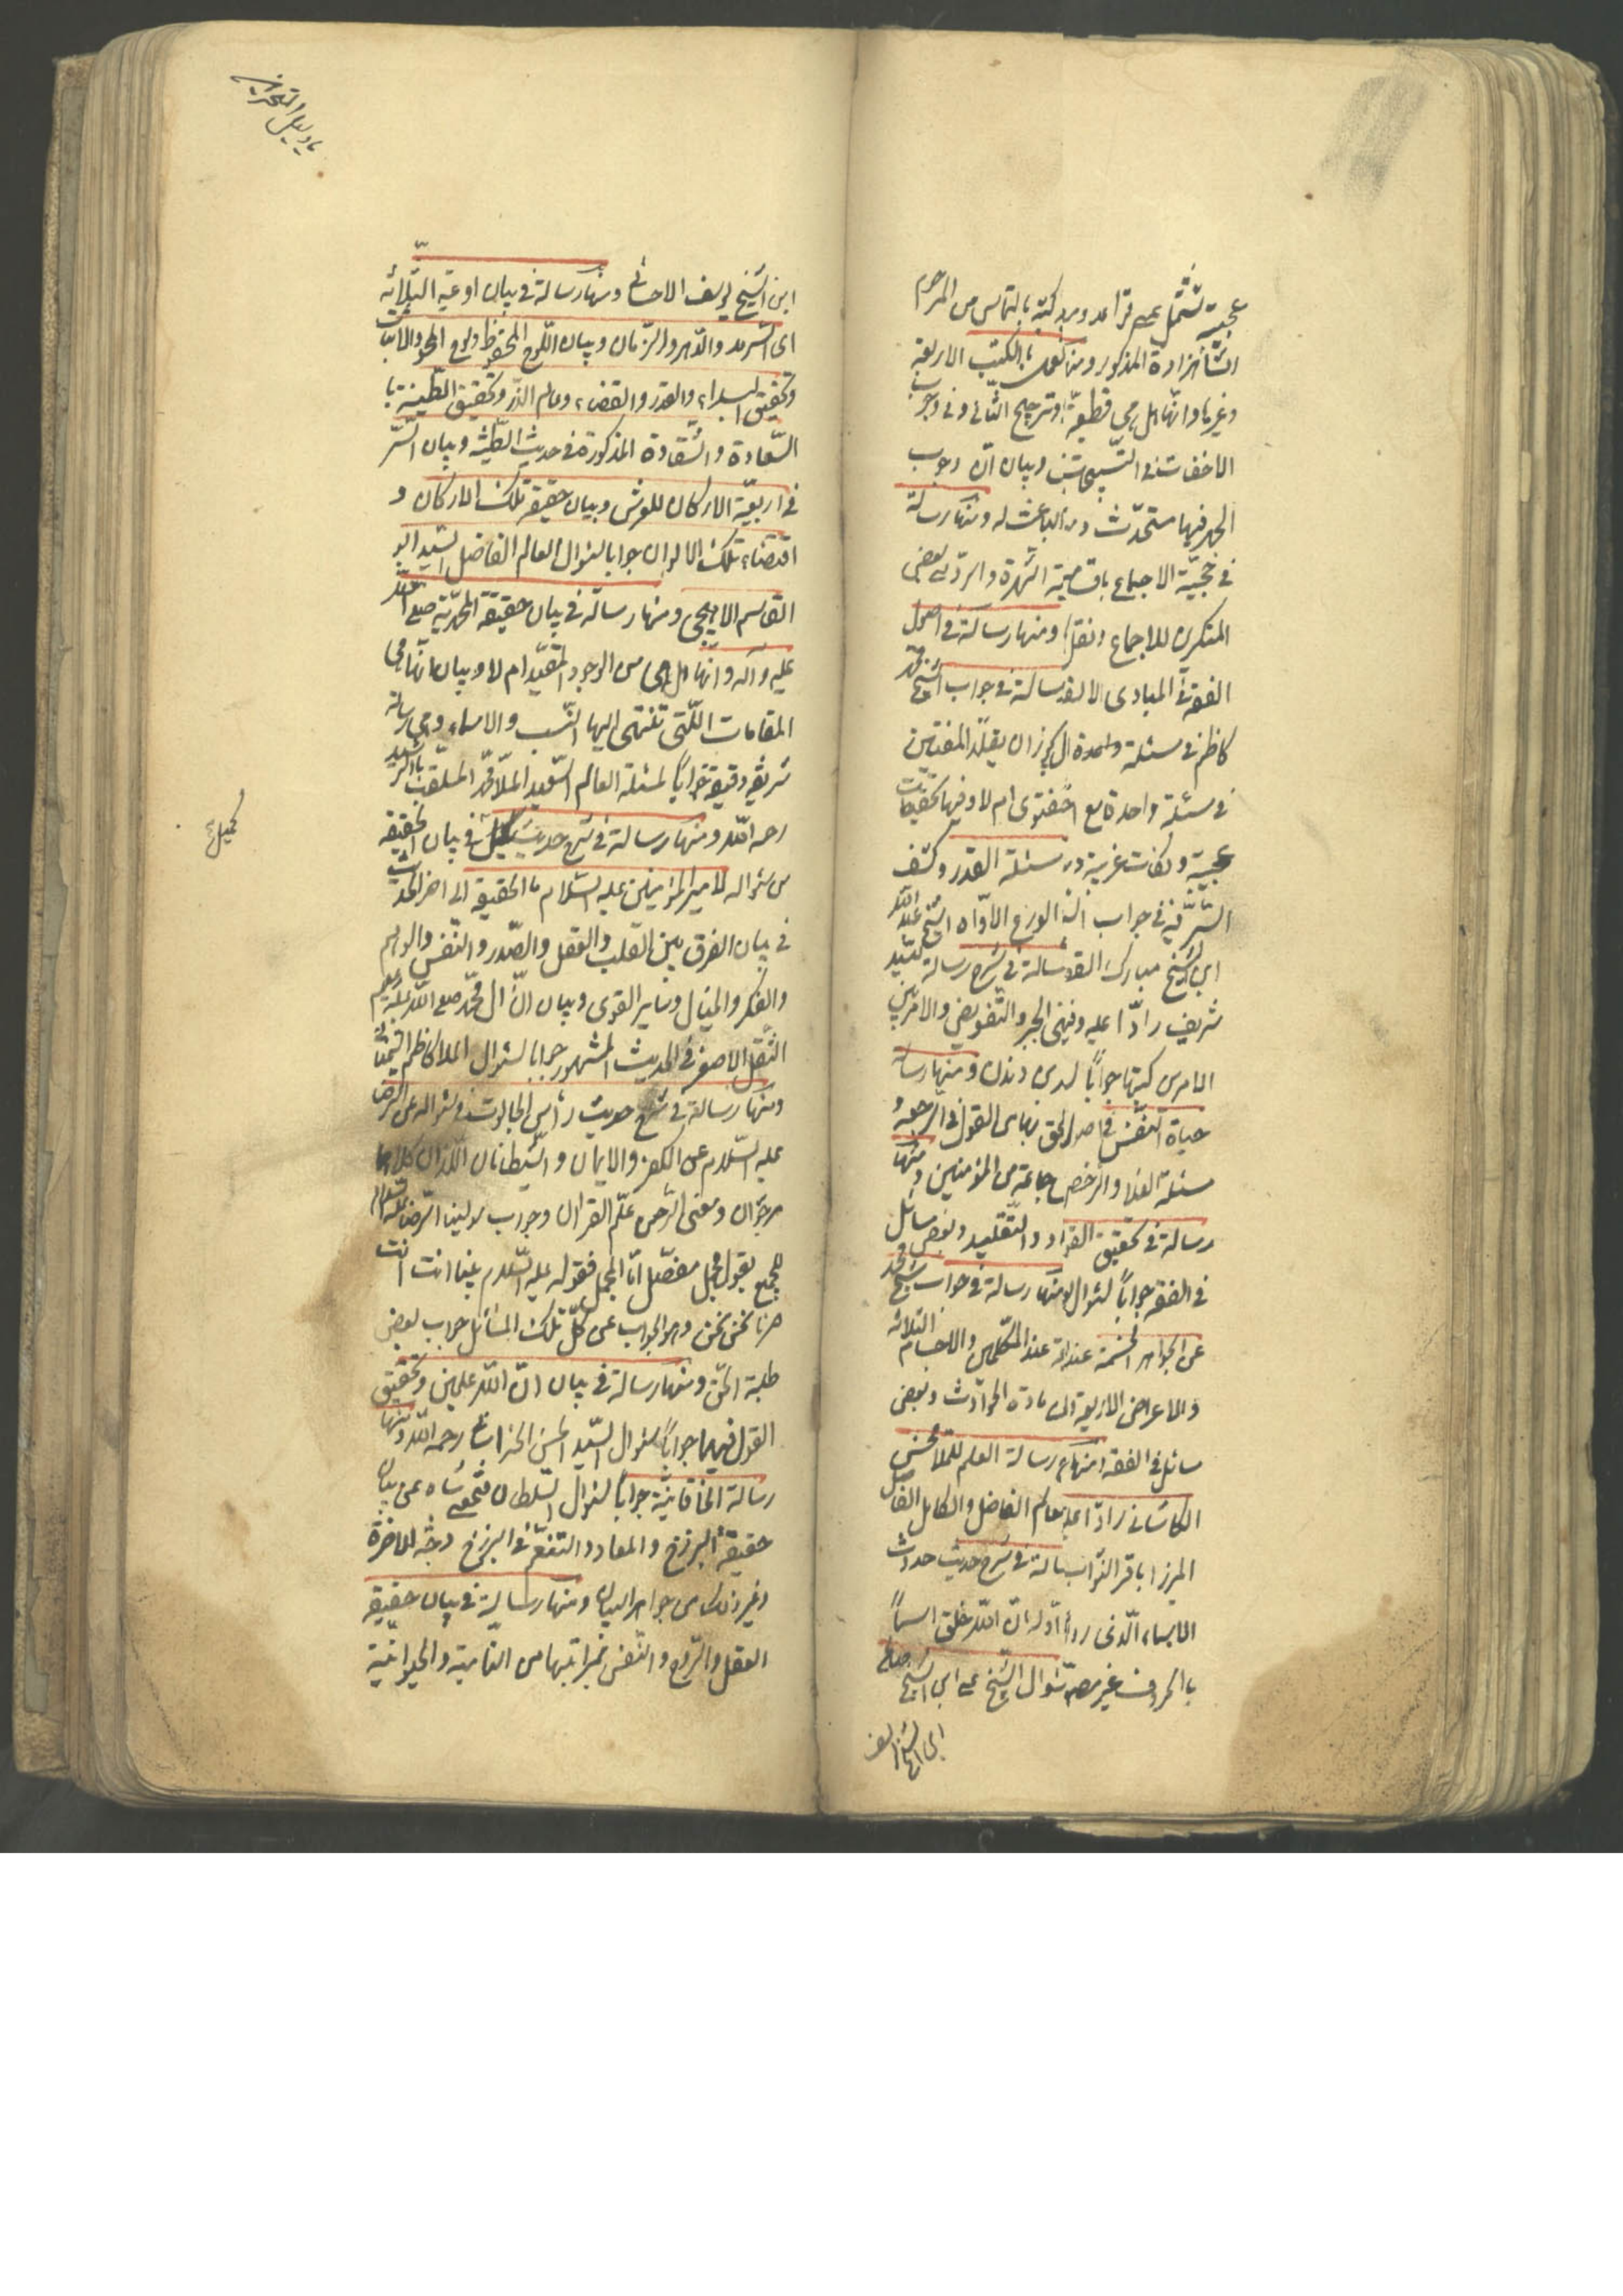 عجيبة تشتمل على قواعد و كتبه بالتماس من المرحوم
الشاهزادة المذكور ومنها بالكتب الاربعة
وغيرها وانها هل هي قطعية وترجيح الثاني وفي وجوب
الاخفات في التسبيحتين وبيان ان وجوب
الجهر فيها مستحدث ومن الباعث له ومنها رسالة
في حجية الاجماع باقسامه الشهرة والرد على بعض
المنكرين للاجماع ونقل ومنها رسالة في اصول
الفقه في المبادى رسالة في جواب الشيخ محمد
كاظم في مسئلة واحدة ان يقلد المفتيين
في مسئلة واحدة مع ام لا وفيها تحقيقات
عجيبة ونكات غريبة ومن مسئلة القدر وكشف
السر فيه في جواب الورع الاواه الشيخ عبد الله
ابن الشيخ مبارك رسالة في شرح رسالة السيد
شريف رادا عليه ونفي الجبر والتفويض والامر بين
الامرين كتبها جوابا ومنها رسالة
حياة النفس في اصول القول في الرجعة و
مسئلة الغلا والرخص جماعة من المؤمنين ومنها
رسالة في تحقيق والتقليد وبعض مسائل
في الفقه جوابا لسؤال ومنها رسالة في جواب شيخ محمد
عن الجواهر الخمسة عند المتكلمين والاجسام الثلاثة
والاعراض الاربعة وان مادة الحوادث وبعض
مسائل في الفقه ومنها رسالة العلم للملا محسن
الكاشاني رادا عليه الفاضل والكامل
الميرزا باقر النواب رسالة في شرح حديث حدوث
الاسماء الذي اوله ان الله خلق اسما
بالحروف غير مصوت لسؤال الشيخ على ابن الشيخ صالح
ابن الشيخ يوسف
يا دليل المتحيرين
ابن الشيخ يوسف الاحسائي ومنها رسالة في بيان اوعية الثلاثة
اى السرمد والدهر والزمان وبيان اللوح المحفوظ ولوح المحو والاثبات
وتحقيق البداء والقدر والقضاء وعالم الذر وتحقيق الطينة با
السعادة والشقاوة المذكورة في حديث الطينة وبيان السر
في اربعية الاركان للعرش وبيان حقيقة تلك الاركان و
اقتضاء تلك الالوان جوابا لسؤال العالم الفاضل السيد ابو
القاسم اللاهيجي ومنها رسالة في بيان حقيقة المحمدية صلى الله
عليه وآله وانها هل هي من الوجود المقيد ام لا وبيان انها هي
المقامات التي تنتهى اليها النسب والاسماء وهي رسالة
شريفة دقيقة جوابا لمسئلة العالم السعيد الملا محمد الملقب بالرشيد
رحمه الله ومنها رسالة في شرح حديث كميل في بيان الحقيقة
من سؤاله لامير المؤمنين عليه السلام ما الحقيقة الى اخر الحديث
في بيان الفرق بين القلب والعقل والصدر والنفس والوهم
والفكر والخيال وساير القوى وبيان ان آل محمد صلى الله عليه وعليهم
الثقل الاصغر في الحديث المشهور جوابا لسؤال الملا كاظم السمناني
ومنها رسالة في شرح حديث رأس الجالوت في سؤاله عن الرضا
عليه السلام عن الكفر والايمان والشيطانان اللذان كلاهما
مرجوان ومعنى الرحمن علم القرآن وجواب مولينا الرضا عليه السلام
للجميع بقول مجمل مفصل اما المجمل فقوله عليه السلام بينا انت انت
صرنا نحن نحن وهو الجواب عن كل تلك المسائل جواب بعض
طلبة الحق ومنها رسالة في بيان ان الله علمين وتحقيق
القول فيهما جوابا لسؤال السيد الحسن الخراساني رحمه الله ومنها
رسالة الخاقانية جوابا لسؤال السلطان فتحعلى شاه عن بيان
حقيقة البرزخ والمعاد والتنعم في البرزخ وجنة الاخرة
وغير ذلك من جواهر البيان ومنها رسالة في بيان حقيقة
العقل والروح والنفس بمراتبها من النامية والحيوانية
كميل